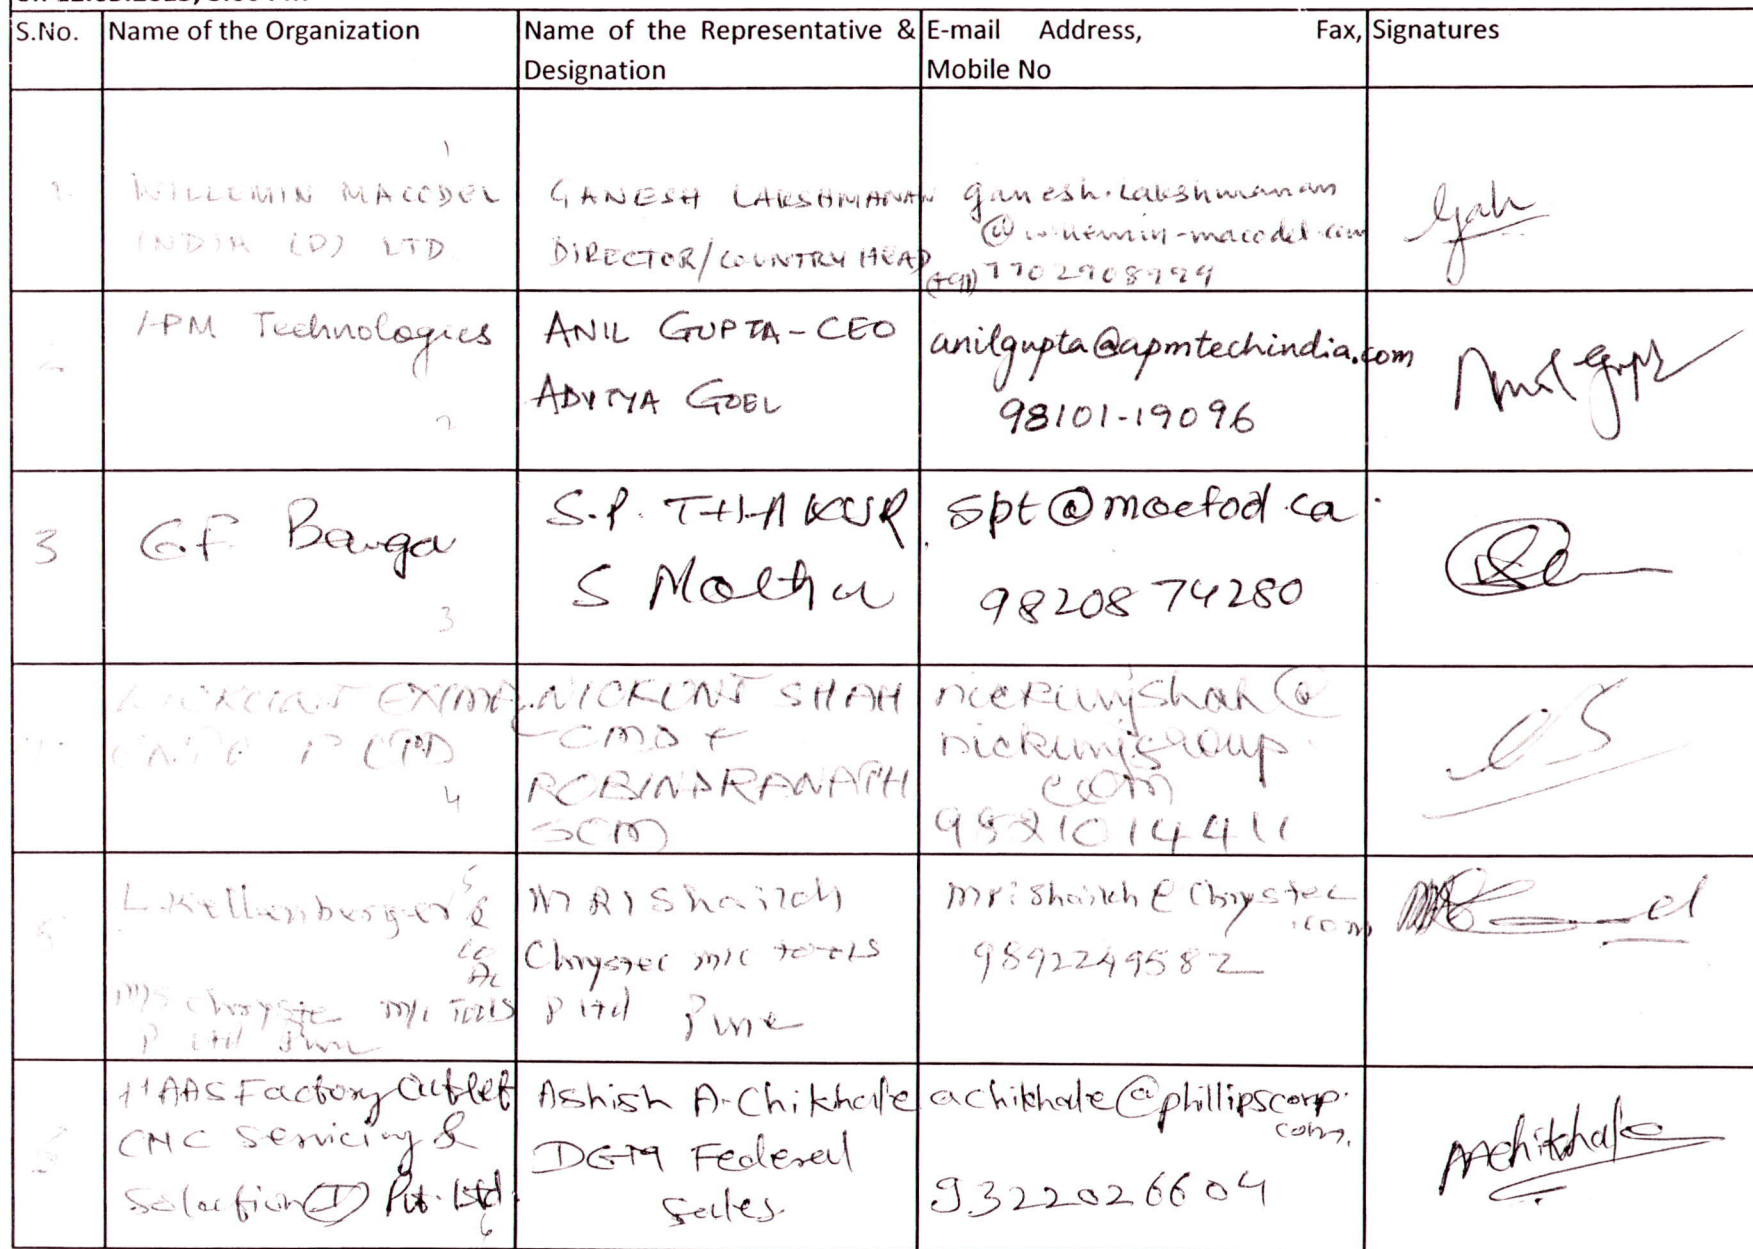 S.No. Name of the Organization Name of the Representative & Designation E-mail Address, Fax, Mobile No Signatures
1
WILLEMIN MACODEL
INDIA (P) LTD
GANESH LAKSHMANAN
DIRECTOR/COUNTRY HEAD
ganesh.lakshmanan
@willemin-macodel.com
(+91)
2
APM Technologies
2
ANIL GUPTA-CEO
ADITYA GOEL
anilgupta@apmtechindia.com
98101-19096
Anil Gupta
3
G.F.
3
S.P. THAKUR
S
spt@macfod.ca
98208 74280
EXIM
P LTD
4
NICKUNJ SHAH
-CMD +
ROBINDRANATH
SCM
nickunjshah@
nickunjgroup.
com
9821014411
5
L.Kellenberger &
Co
M/S Chrystec M/c Tools
P Ltd Pune
5
M R I Shaikh
Chrystec m/c tools
P Ltd Pune
mrishaikh@Chrystec
.com
9892249582
HAAS Factory Outlet
CNC Servicing &
Solution (I) Pvt. Ltd.
6
Ashish A. Chikhale
DGM Federal
Sales.
achikhale@phillipscorp.
com.
9322026604
Achikhale